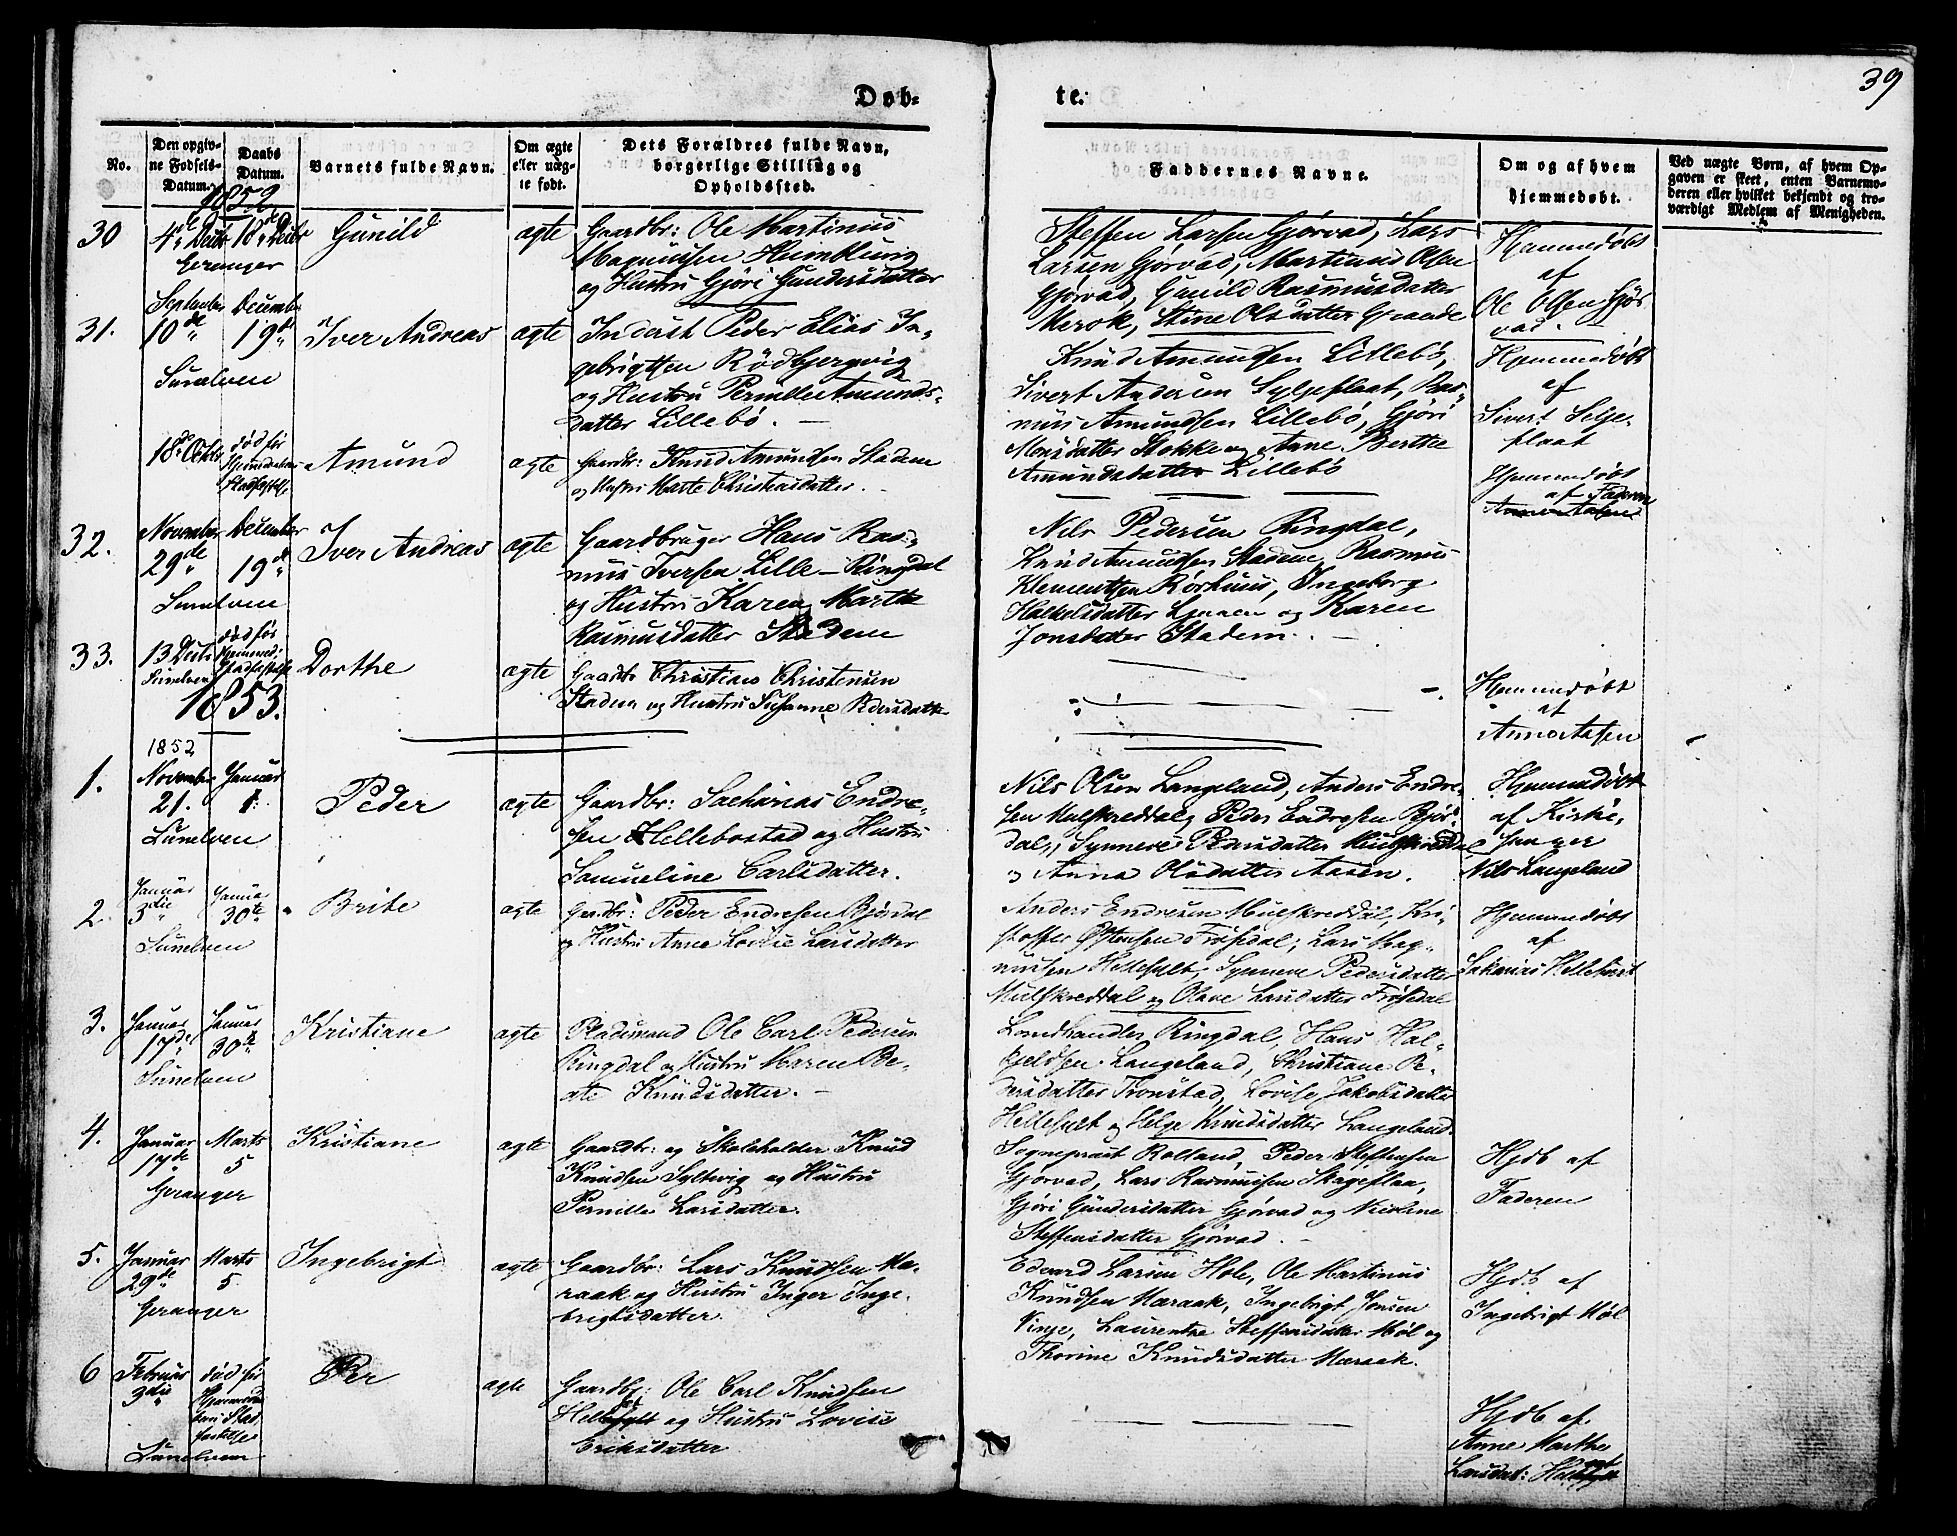 39
Døb-
te.
No.
Den opgiv-
ne Fødsels-
Datum.
Daabs
Datum.
Barnets fulde Navn.
Om ægte
eller uæg-
te født.
Dets Forældres fulde Navn,
borgerlige Stilling og
Opholdssted.
Faddernes Navne.
Om og af hvem
hjemmedøbt.
Ved uægte Børn, af hvem Op-
gaven er skeet, enten Barnemo-
deren eller hvilket bekjendt og tro-
værdigt Medlem af Menigheden.
1852
30
4de Decbr
18de Decbr
Geranger
Gunild
ægte
Gaardbr: Ole Martinus
Magnussen Humlung
og Hustru Gjøri Gundersdatter
Steffen Larsen Gjørvad, Lars
Larsen Gjørvad, Martinus Olsen
Gjørvad, Gunild Rasmusdatter
Merok, Stine Olsdatter Grande
Hjemmedøbt
af
Ole Olsen Gjør
vad.
31.
September
10de
Sunelven
December
19de
Iver Andreas
ægte
Inderst Peder Elias In-
gebrigtsen Rödbjergvig
og Hustru Pernille Amunds-
datter Lillebö.
Knud Amundsen Lillebö,
Sivert Andersen Syljeflaat, Ras-
mus Amundsen Lillebö, Gjøri
Monsdatter Stokke og Anne Berthe
Amundsdatter Lillebö
Hjemmedøbt
af
Sivert Selje-
flaat
18de Octbr
död før
Hjemmedaabens
Stadfæstelse
Amund
ægte
Gaardbr: Knud Amundsen Stadem
og Hustru Marte Christensdatter.
Hjemmedøbt
af Faderen
32.
November
29de
Sunelven
December
19de
Iver Andreas
ægte
Gaardbruger Hans Ras-
mus Iversen Lille-Ringdal
og Hustru Karen Marthe
Rasmusdatter Stadem
Nils Pedersen Ringdal,
Knud Amundsen Stadem, Rasmus
Klementsen Rørhuus, Ingeborg
Halkelsdatter Ljøen og Karen
Jonsdatter Stadem.
33.
13 Decbr
Sunelven
död før
Hjemmed:
Stadfæstelse
Dorthe
ægte
Gaardbr Christian Christensen
Stadem og Hustru Susanne Pedersdatter
Hjemmedøbt
af
Anne Aasen
1853.
1.
1852
November
21.
Sunelven
Januar
1.
Peder
ægte
Gaardbr: Sacharias Endre-
sen Hellebostad og Hustru
Samueline Carlsdatter.
Nils Olsen Langeland, Anders Endre-
sen Mulskreddal, Peder Endresen Bjør-
dal, Synneve Pedersdatter Mulskreddal
og Anna Olsdatter Aasen.
Hjemmedøbt
af Kirke-
sanger
Nils Langeland
2.
Januar
3die
Sunelven
Januar
30te
Brite
ægte
Gardbr: Peder Endresen Bjørdal
og Hustru Anne Lovise Larsdatter
Anders Endresen Mulskreddal, Kri-
stoffer Østensen Frøsedal, Lars Mag-
nussen Hellesylt, Synneve Pedersdatter
Mulskreddal og Olave Larsdatter Frøisdal
Hjemmedøbt
af
Sakarias Hellebost
3.
Januar
17de
Sunelven
Januar
30te
Kristiane
ægte
Pladsmand Ole Carl Pedersen
Ringdal og Hustru Maren Be-
ate Knudsdatter.
Landhandler Ringdal, Hans Hal-
kjeldsen Langeland, Christiane Pe-
dersdatter Tronstad, Lovise Jakobsdatter
Hellesylt og Helge Knudsdatter Langeland.
4.
Januar
17de
Geranger
Marts
5
Kristiane
ægte
Gaardbr: og Skoleholder Knud
Knudsen Syltevig og Hustru
Pernille Larsdatter.
Sognepræst Rolland, Peder Steffensen
Gjørvad, Lars Rasmussen Skageflaa,
Gjöri Gundersdatter Gjørvad og Nicoline
Steffensdatter Gjørvad.
Hjdb af
Faderen
5.
Januar
29de
Geranger
Marts
5
Ingebrigt
ægte
Gaardbr: Lars Knudsen Ma-
raak og Hustru Inger Inge-
brigtsdatter
Edvard Larsen Hole, Ole Martinus
Knudsen Maraak, Ingebrigt Jonsen
Vinje, Laurentse Steffensdatter Møl og
Thorine Knudsdatter Maraak.
Hjdb af
Ingebrigt Møl
6
Februar
3die
Sunelven
død før
Hjemmedaa-
bens Stad-
fæstelse
Per
ægte
Gaardbr: Ole Carl Knudsen
Hellesylt og Hustru Lovise
Eriksdatter
Hjdb af
Anne Marthe
Larsdat: Hellesylt